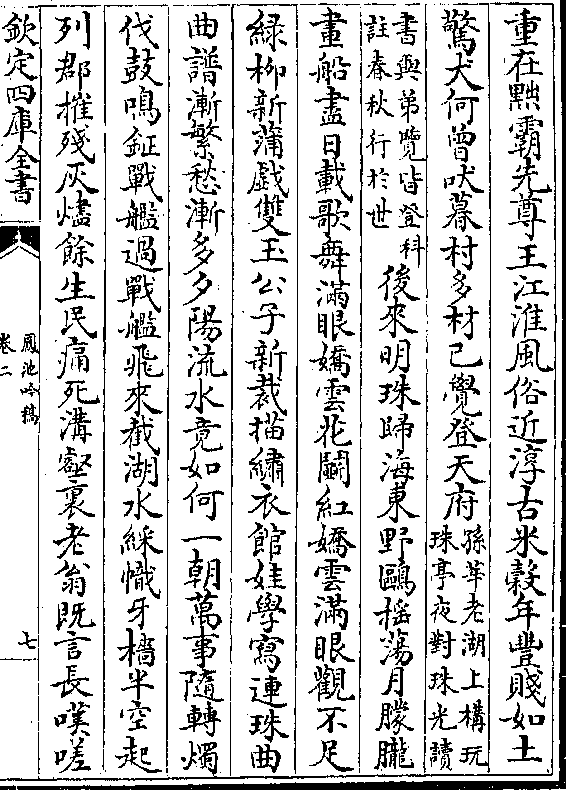 重在㸃霸先尊王江淮風俗近淳古米穀年豐賤如土
驚犬何曾吠暮村多材已覺登天府孫莘老湖上構玩珠亭夜對珠光讀
書與弟覽皆登科註春秋行於世後來明珠歸海東野鷗摇蕩月朦朧
畫船盡日載歌舞滿眼嬌雲花鬭紅嬌雲滿眼觀不足
緑柳新蒲戲雙玉公子新裁描繡衣館娃學寫連珠曲
曲譜漸繁愁漸多夕陽流水竟如何一朝萬事隨轉燭
伐鼓鳴鉦戰艦過戰艦飛來截湖水綵幟牙檣半空起
列郡摧殘灰燼餘生民痛死溝壑裏老翁既言長嘆嗟
欽定四庫全書
鳳池吟稿
卷二
七